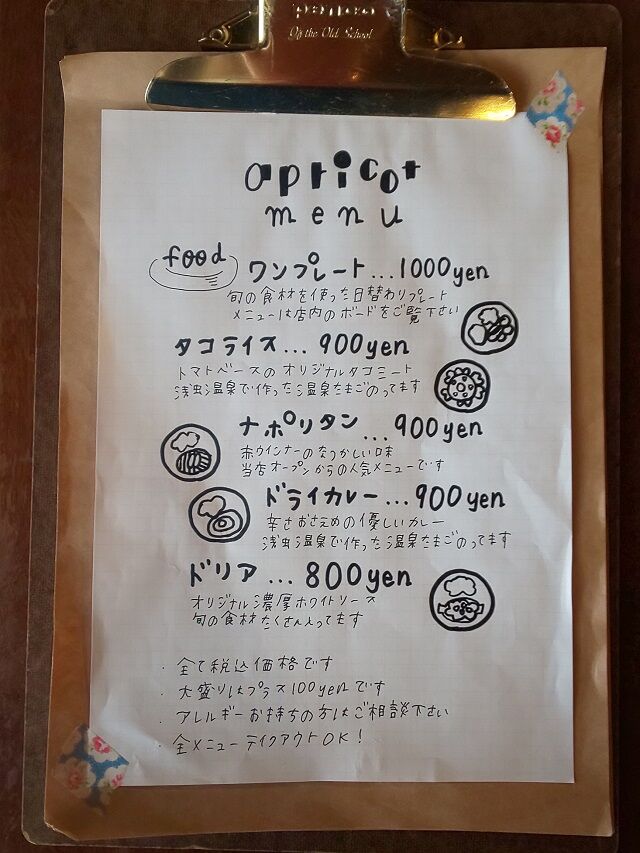 Of the Old School
apricot
menu
food
ワンプレート...1000yen
旬の食材を使った日替わりプレート
メニューは店内のボードをご覧下さい
タコライス...900yen
トマトベースのオリジナルタコミート
浅虫温泉で作った温泉たまごのってます
ナポリタン...900yen
赤ウインナーのなつかしい味
当店オープンからの人気メニューです
ドライカレー...900yen
辛さおさえめの優しいカレー
浅虫温泉で作った温泉たまごのってます
ドリア...800yen
オリジナル濃厚ホワイトソース
旬の食材たくさん入ってます
・全て税込価格です
・大盛りはプラス100yenです
・アレルギーお持ちの方はご相談下さい
・全メニューテイクアウトOK!